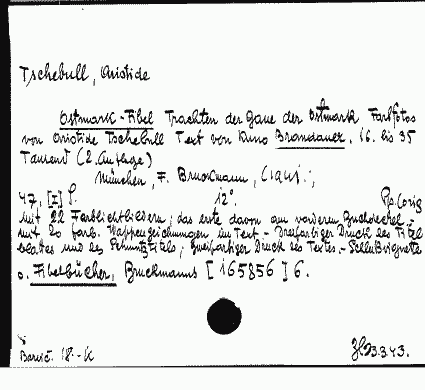 Tschebull, Aristide
Ostmark-Fibel Trachten der Gaue der Ostmark Farbfotos
von Aristide Tschebull Text von Kuno Brandauer, 16. bis 35
Tausend (2. Auflage)
München, F. Bruckmann,
47, [I] S. 12° Pp. (orig
mit 22 Farblichtbildern, das erste davon am vorderen Buchdeckel -
mit 20 farb. Wappenzeichnungen im Text. - Dreifarbiger Druck des Titel
blattes und des Schmutztitels, zweifarbiger Druck des Textes. - Schlußvignette
o. Fibelbücher, Bruckmanns [165856] 6.
Barvič. 18.- K
3.3.43.